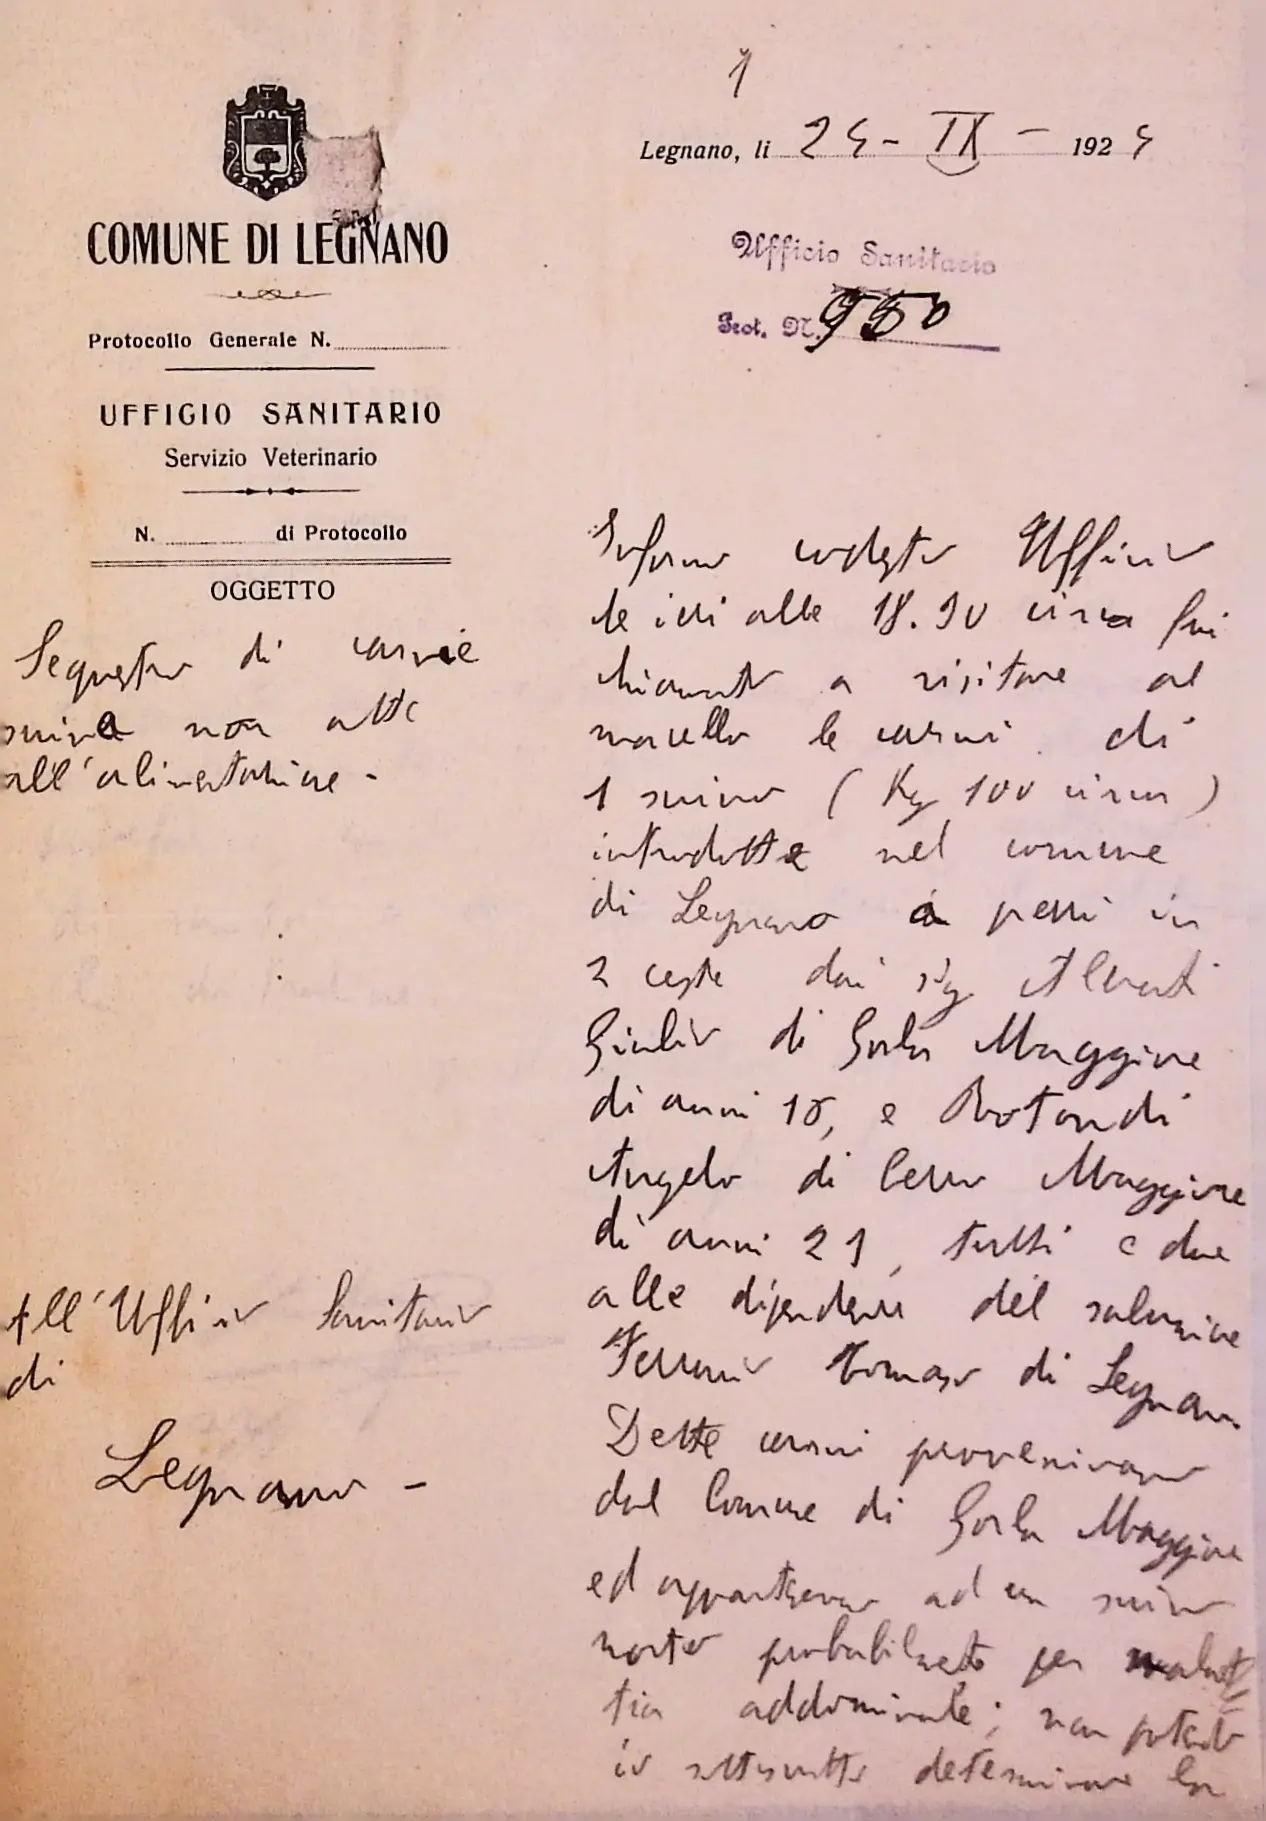 1
Legnano, li 24 - IX - 1924
COMUNE DI LEGNANO
Ufficio Sanitario
Prot. N. 950
Protocollo Generale N.
UFFICIO SANITARIO
Servizio Veterinario
N. di Protocollo
OGGETTO
Sequestro di carne
suina non atta
all'alimentazione -
All'Ufficio Sanitario
di
Legnano -
Informo codesto Ufficio
che ieri alle 18.30 circa fui
chiamato a visitare al
macello le carni di
1 suino (Kg 100 circa)
introdotte nel comune
di Legnano a pezzi in
2 ceste dai Sig
Giulio di Gorla Maggiore
di anni 18, e Rotondi
Angelo di Cerro Maggiore
di anni 21, tutti e due
alle dipendenze del salumiere
Ferrario Tomaso di Legnano
Dette carni provenivano
dal Comune di Gorla Maggiore
ed appartenevano ad un suino
morto probabilmente per malat
tia addominale; non potendo
io sottoscritto determinare la